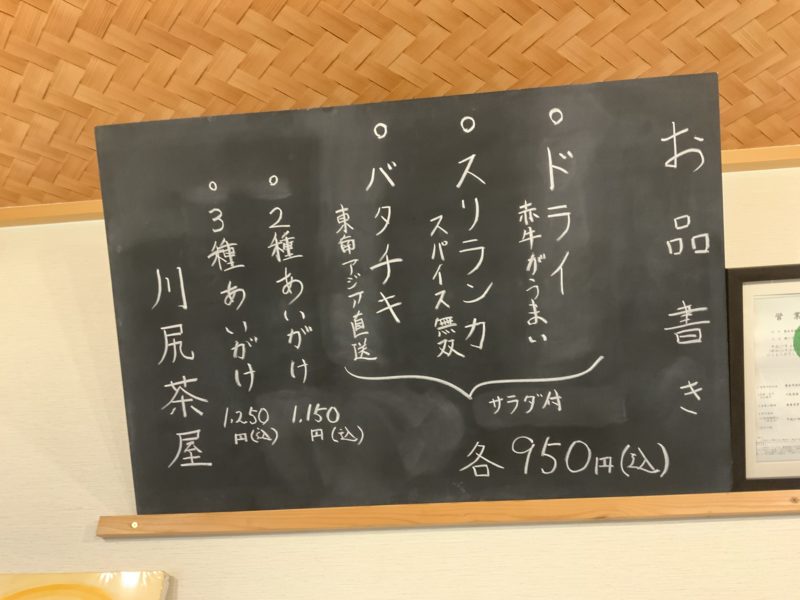 お品書き
○ドライ
赤牛がうまい
○スリランカ
スパイス無双
○バタチキ
東南アジア直送
サラダ付
各950円(込)
○2種あいがけ
1.150円(込)
○3種あいがけ
1.250円(込)
川尻茶屋
営業